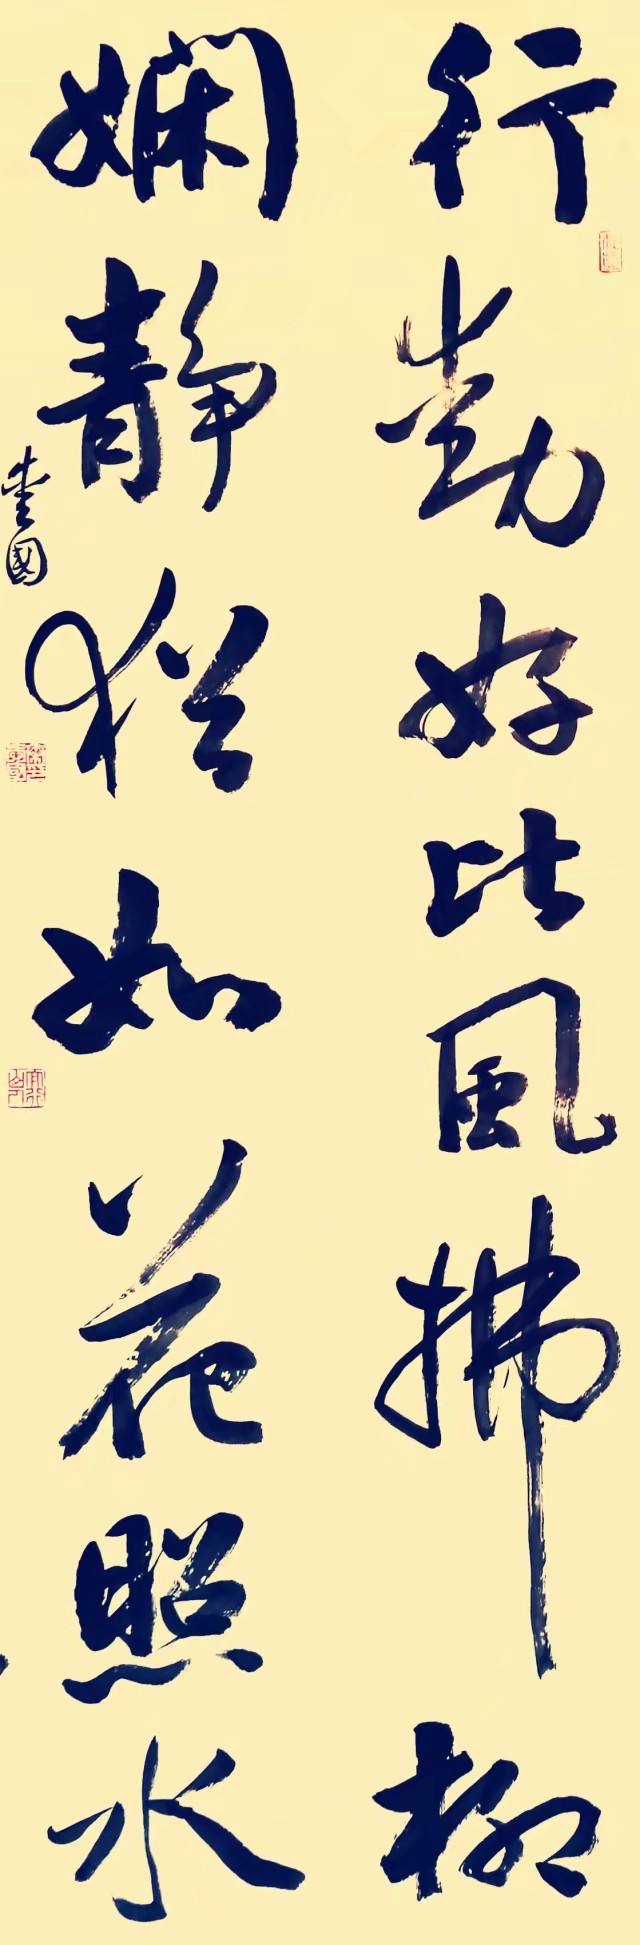 行動好比風拂柳
嫻靜猶如花照水
國